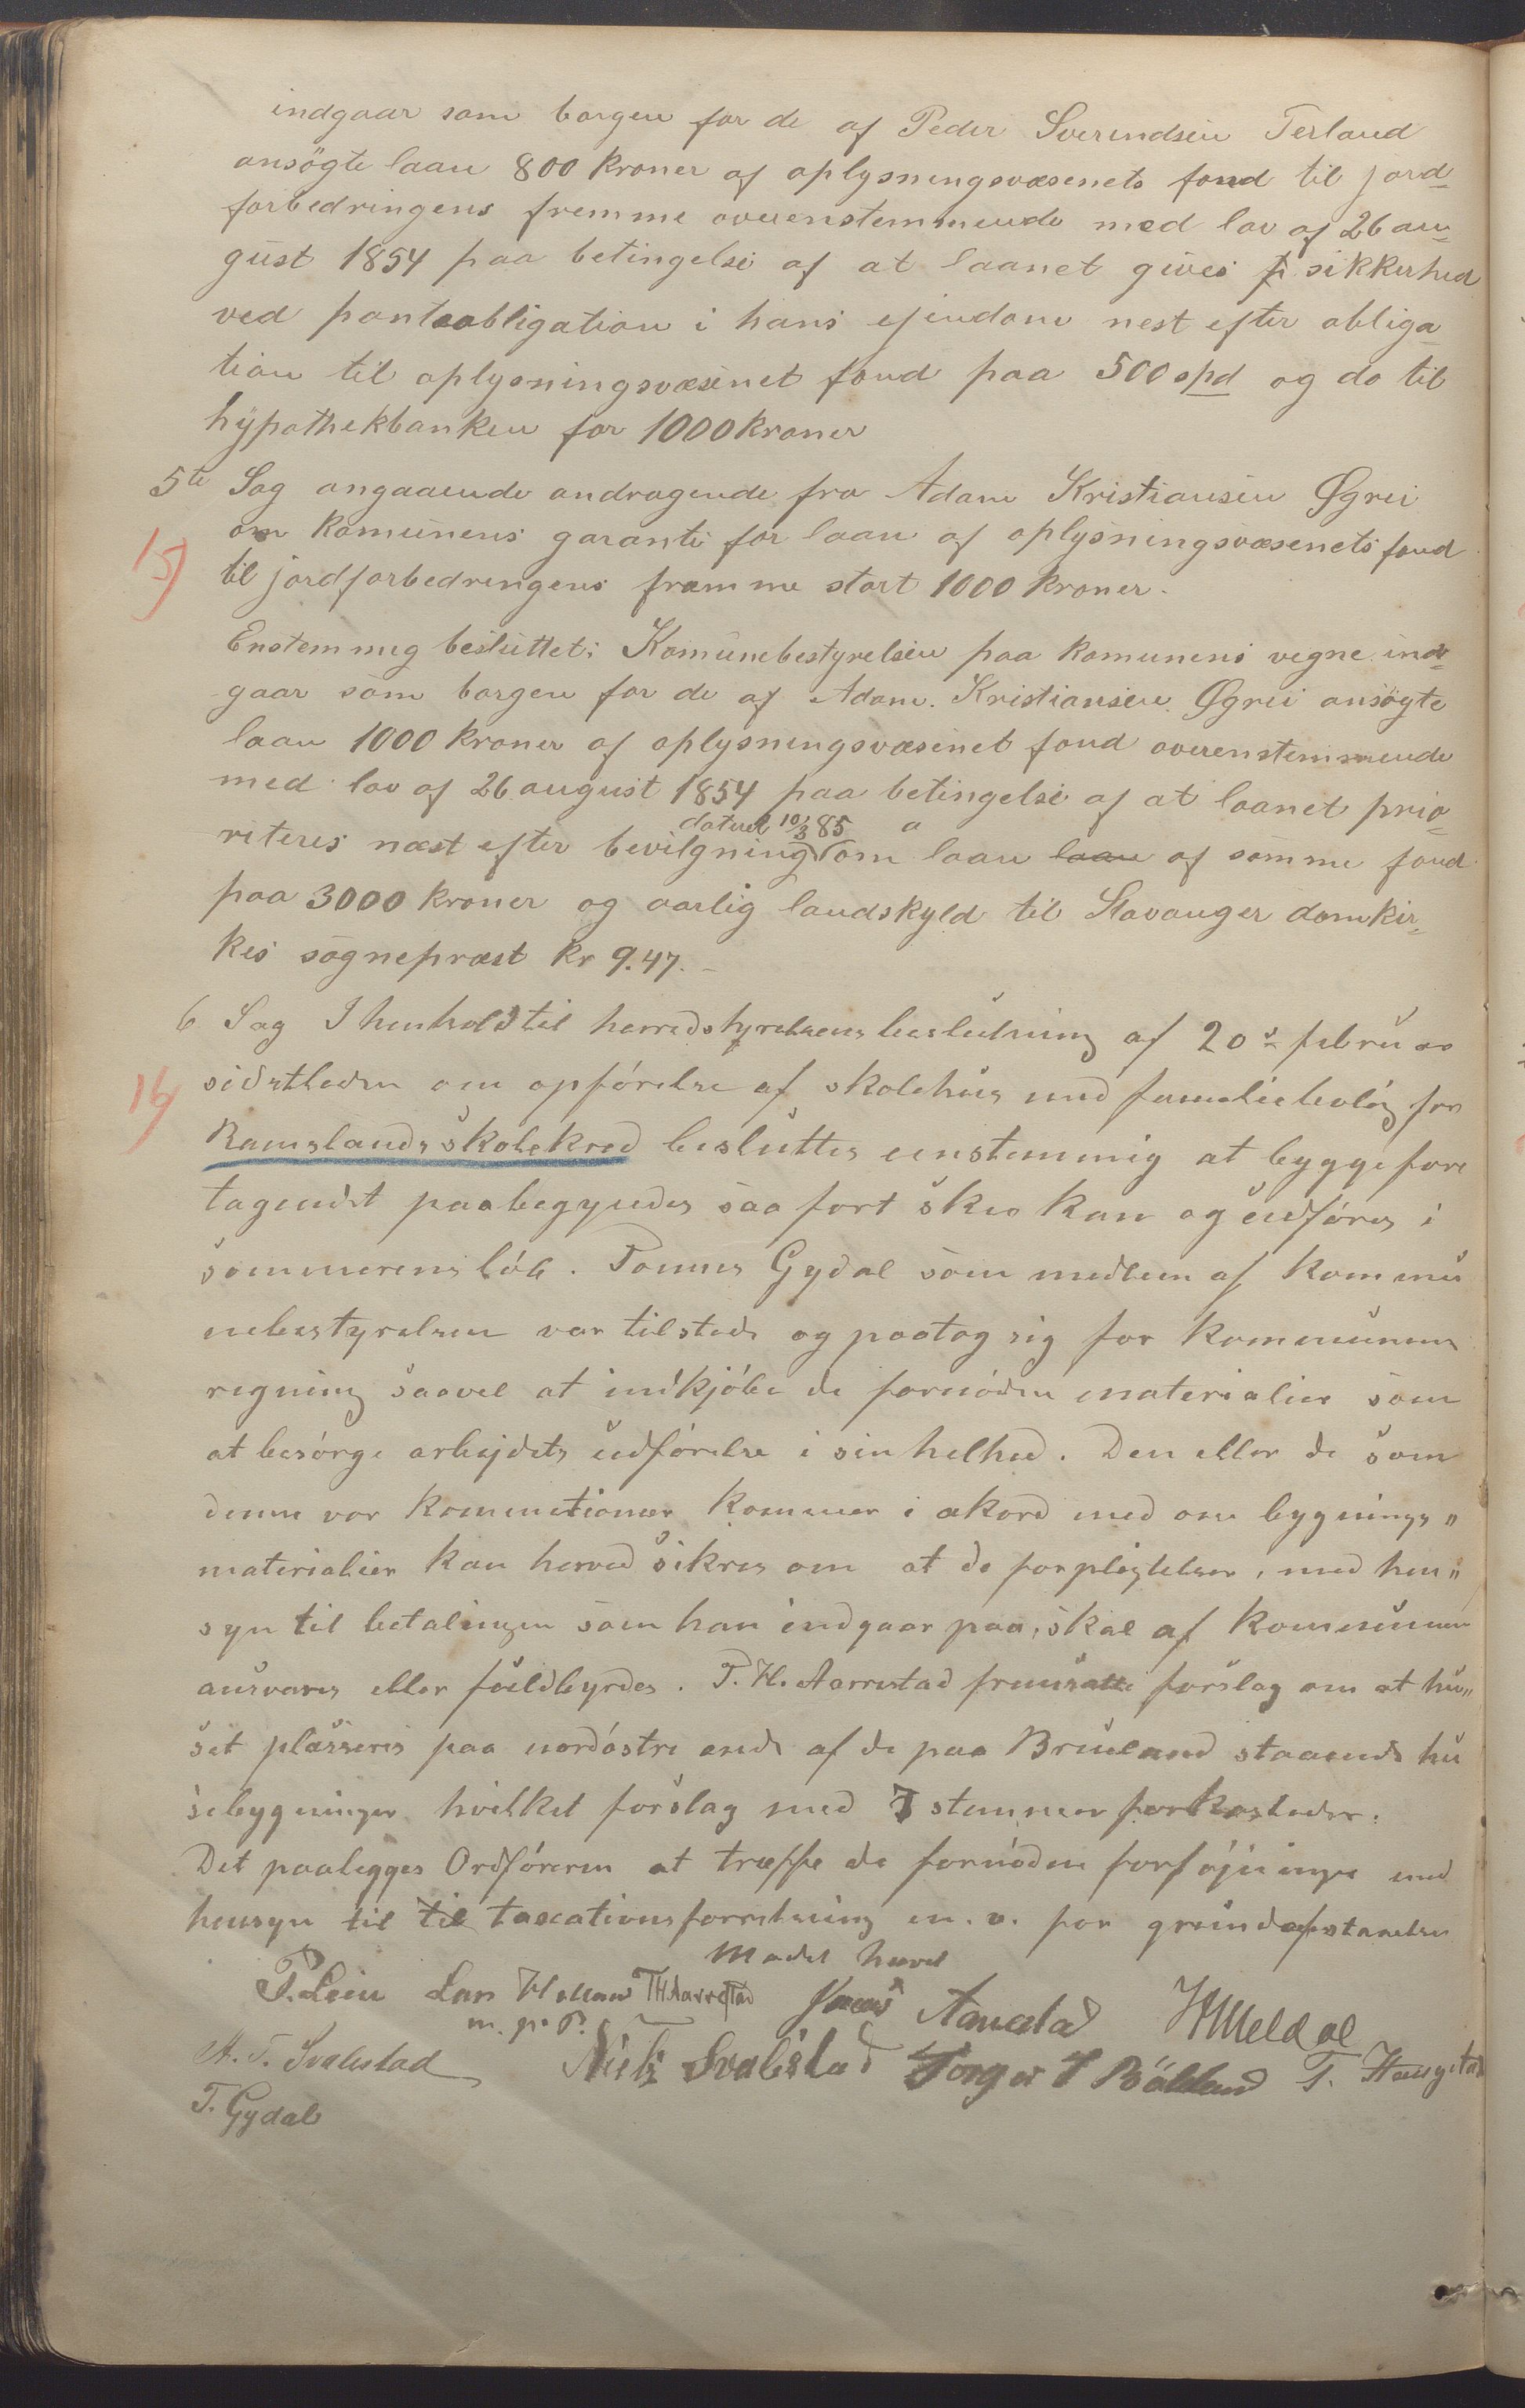 indgaar som borgen for de af Peder Sverendsen Terland
ansögte laan 800 kroner af oplysningsvæsenets fond til jord-
forbedringens fremme overenstemmende med lov af 26 au-
gust 1854 paa betingelse af at laanet gives sikkerhed
ved panteobligation i hans ejendom nest efter obliga-
tion til oplysningsvæsenet fond paa 500 spd og do til
hypothekbanken for 1000 kroner
5te Sag angaaende andragende fra Adam Kristiansen Øgrei
om Komunens garanti for laan af oplysningsvæsenets fond
15) til jordforbedringens fremme stort 1000 kroner.
Enstemmig besluttet: Komunebestyrelsen paa komunens vegne ind-
gaar som borgen for de af Adam Kristiansen Øgrei ansögte
laan 1000 kroner af oplysningsvæsenet fond overenstemmende
med lov af 26 august 1854 paa betingelse af at laanet prio-
dateret 10/3 85
riteres næst efter bevilgning om laan laan af samme fond
paa 3000 kroner og aarlig landskyld til Stavanger domkir-
kes sognepræst kr 9.47.-
6 Sag I henhold til herredstyrelsens beslutning af 20de februar
16) sidstleden om opförelse af skolehus med familiebolig for
Ramslands skolekred besluttes eenstemmig at byggefore
tagendet paabegyndes saa fort skee kan og udföres i
sommerens löb. Tønnes Gydal som medlem af kommu
nebestyrelsen var tilstede og paatog sig for kommunens
regning saavel at indkjöbe de fornödne materialier som
at besörge arbejdets udförelse i sin helhed. Den eller de som
denne vor kommetionær kommer i akord med om bygnings"
materialier kan herved sikres om at de forpligtelser, med hen"
syn til betalingen som han indgaar paa, skal af kommunen
ansvares eller fuldbyrdes. T. H. Aarrestad fremsatte forslag om at hu"
set plasseres paa nordöstre ende af de paa Brueland staaende hu
sebygninger hvilket forslag med 7 stemmer forkastedes.
Det paalegges Ordföreren at træffe de fornödne forföjninger med
hensyn til til taxationsforretning m. v. for grundafstaaelse
Mødet hævet
P. Lein Lars Helland THAarrestad Jonas Aarrestad HMeldal
m. p. P.
A. T. Svalestad Niels Svalestad Torger T Bölland T. Haugstad
T. Gydal